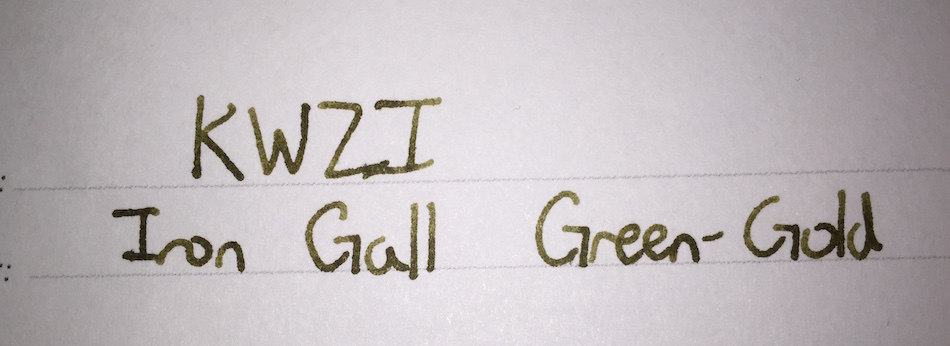 KWZI
Iron Gall Green-Gold